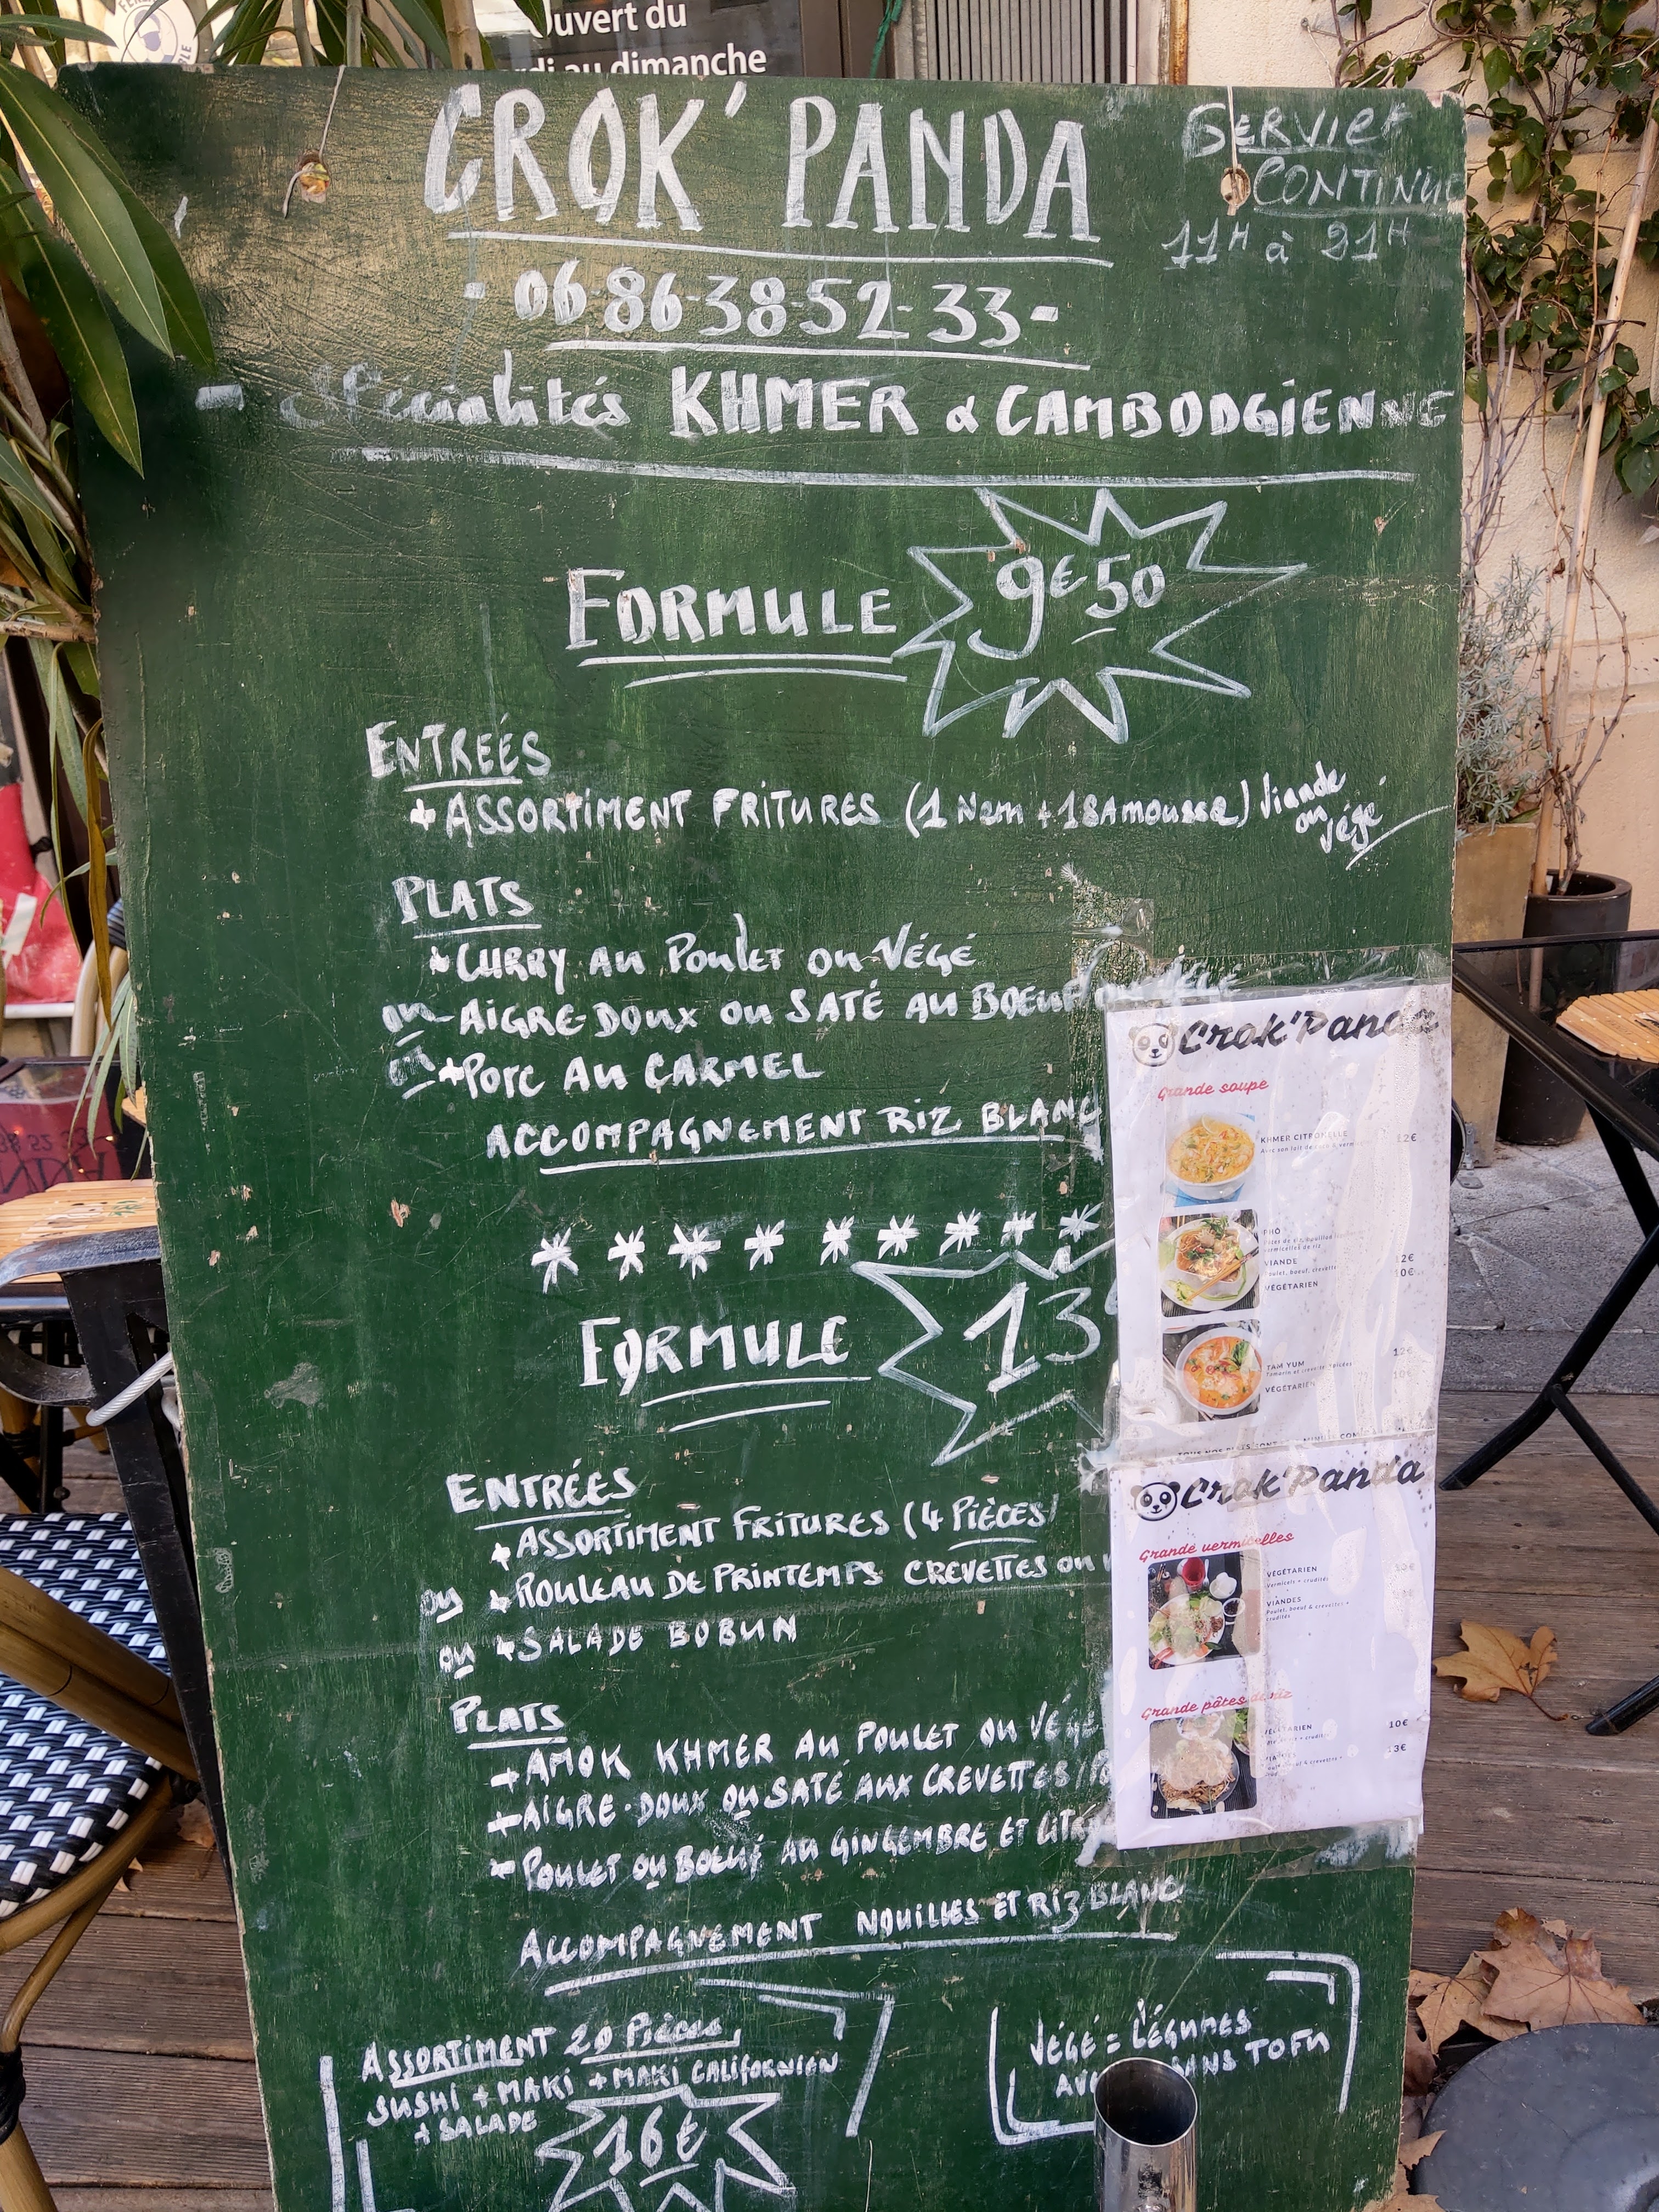 Ouvert du
di au dimanche
CROK' PANDA
SERVICE
CONTINUE
11H à 21H
- 06-86-38-52-33-
- Spécialités KHMER & CAMBODGIENNE
FORMULE 9€50
ENTREÉS
+ ASSORTIMENT FRITURES (1 Nem + 1 SAmoussa) Viande
ou
végé
PLATS
+ CURRY AU Poulet ou VÉGÉ
ou - AIGRE-DOUX OU SATÉ AU BOEUF
ou + Porc AU CARMEL
ACCOMPAGNEMENT RIZ BLANC
* * * * * * * * *
FORMULE 13
ENTRÉES
+ ASSORTIMENT FRITURES (4 PIÈCES)
ou + ROULEAU DE PRINTEMPS CREVETTES ou
ou + SALADE BOBUN
PLATS
+ AMOK KHMER AU POULET OU VÉGÉ
+ AIGRE-DOUX OU SATÉ AUX CREVETTES
+ POULET OU BOEUF AU GINGEMBRE ET
ACCOMPAGNEMENT NOUILLES ET RIZ BLANC
ASSORTIMENT 20 PIÈCES
SUSHI + MAKI + MAKI CALIFORNIEN
+ SALADE
16€
VÉGÉ = LÉGUMES
SANS TOFU
Crok'Panda
Grande soupe
KHMER CITRONELLE 12€
PHÔ
VIANDE 12€
Poulet, boeuf, crevette
VÉGÉTARIEN 10€
TAM YUM 12€
VÉGÉTARIEN 10€
Crok'Panda
Grande vermicelles
VÉGÉTARIEN
Vermicels + crudités
VIANDES
Poulet, boeuf & crevettes +
crudités
Grande pâtes de riz
VÉGÉTARIEN 10€
13€